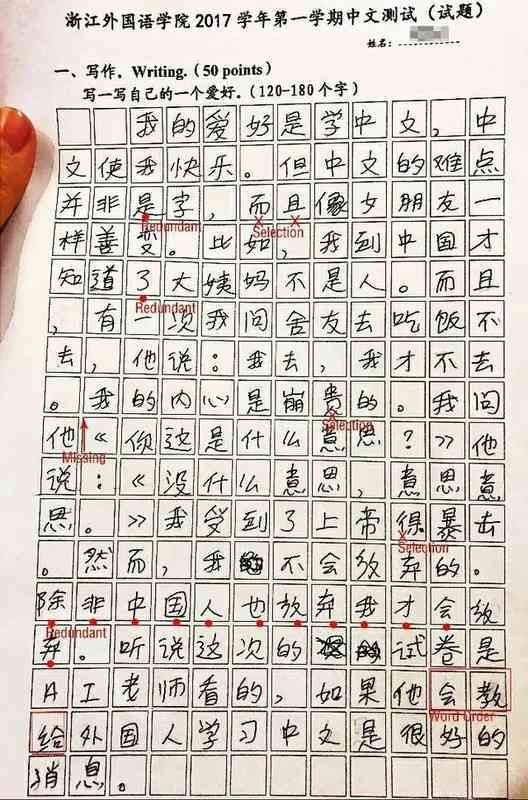 浙江外国语学院 2017 学年第一学期中文测试（试题）
姓名：
一、写作，Writing.（50 points）
写一写自己的一个爱好.（120-180 个字）
我的爱好是学中文，中
文使我快乐。但中文的难点
并非是字，而且像女朋友一
Redundant Selection
样善变。比如，我到中国才
知道了大姨妈不是人。而且
Redundant
，有一次我问舍友去吃饭不
去，他说：我去，我才不去
。我的内心是崩贵的。我问
Selection
他《你这是什么意思？》他
Missing
说：《没什么意思，意思意
思。》我受到了上帝得暴击
Selection
。然而，我不会放弃的。
除非中国人也放弃我才会放
Redundant
弃。听说这次的试卷是
AI老师看的，如果他会教
Word Order
给外国人学习中文是很好的
消息。